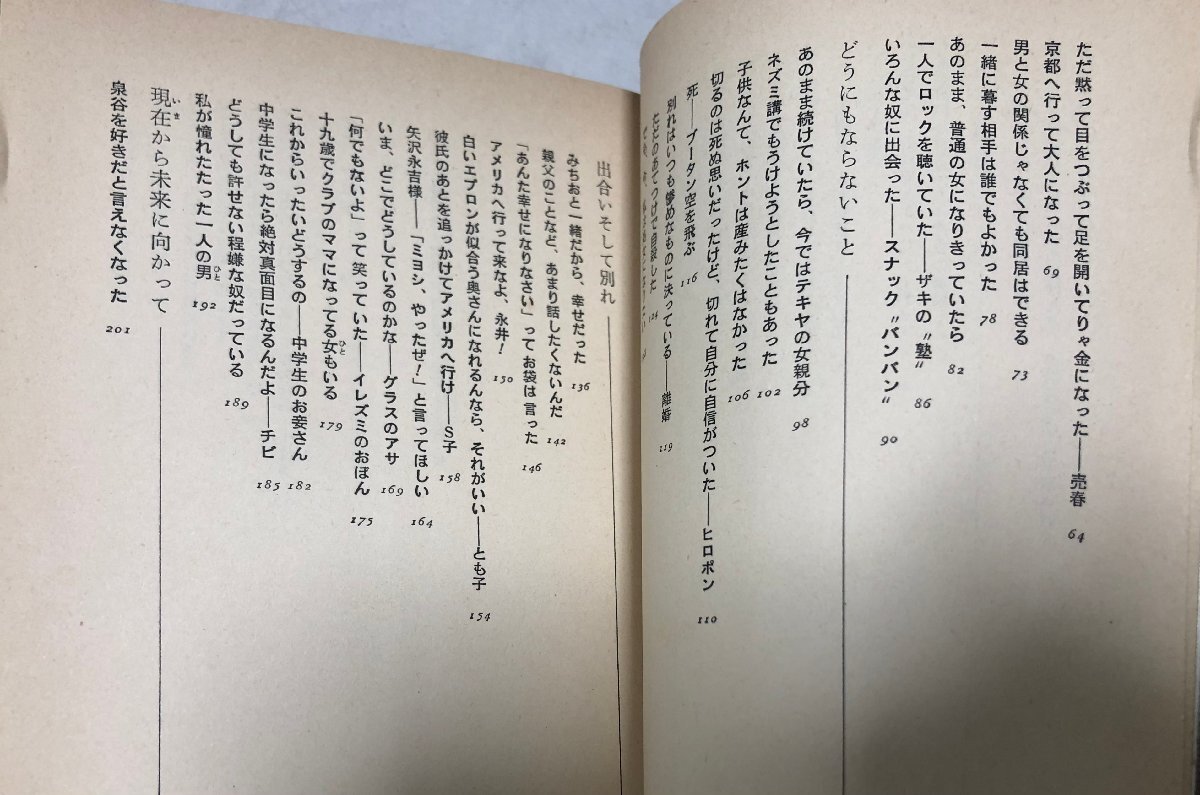 ただ黙って目をつぶって足を開いてりゃ金になった——売春 64
京都へ行って大人になった 69
男と女の関係じゃなくても同居はできる 73
一緒に暮す相手は誰でもよかった 78
あのまま、普通の女になりきっていたら 82
一人でロックを聴いていた——ザキの〝塾〟 86
いろんな奴に出会った——スナック〝バンバン〟 90
どうにもならないこと
あのまま続けていたら、今ではテキヤの女親分 98
ネズミ講でもうけようとしたこともあった 102
子供なんて、ホントは産みたくはなかった 106
切るのは死ぬ思いだったけど、切れて自分に自信がついた——ヒロポン 110
死——ブータン空を飛ぶ 116
別れはいつも惨めなものに決っている——離婚 119
ただのあてつけで自殺した 124
出合いそして別れ
みちおと一緒だから、幸せだった 136
親父のことなど、あまり話したくないんだ 142
「あんた幸せになりなさい」ってお袋は言った 146
アメリカへ行って来なよ、永井! 150
白いエプロンが似合う奥さんになれるんなら、それがいい——とも子 154
彼氏のあとを追っかけてアメリカへ行け——S子 158
矢沢永吉様——「ミヨシ、やったぜ!」と言ってほしい 164
いま、どこでどうしているのかな——グラスのアサ 169
「何でもないよ」って笑っていた——イレズミのおぼん 175
十九歳でクラブのママになってる女もいる 179
ひと
これからいったいどうするの——中学生のお妾さん 182
中学生になったら絶対真面目になるんだよ——チビ 185
どうしても許せない程嫌な奴だっている 189
私が憧れたたった一人の男 192
ひと
現在から未来に向かって
いま
泉谷を好きだと言えなくなった 201